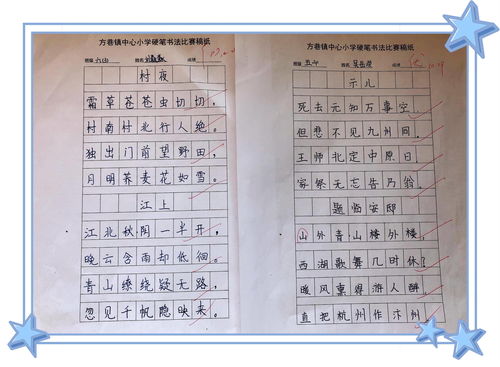 方巷镇中心小学硬笔书法比赛稿纸
班级 姓名 成绩
村夜
霜草苍苍虫切切，
村南村北行人绝。
独出门前望野田，
月明荞麦花如雪。
江上
江北秋阴一半开，
晚云含雨却低徊。
青山缭绕疑无路，
忽见千帆隐映来。
方巷镇中心小学硬笔书法比赛稿纸
班级 姓名 成绩
示儿
死去元知万事空，
但悲不见九州同。
王师北定中原日
家祭无忘告乃翁。
题临安邸
山外青山楼外楼，
西湖歌舞几时休？
暖风熏得游人醉，
直把杭州作汴州。